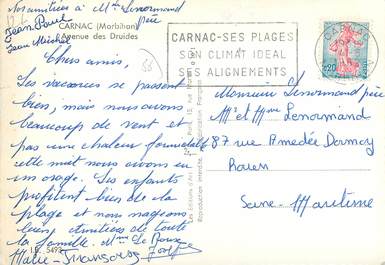 Nos amitiés à Mme Lenormand
père
Jean Paul
Jean Michel
CARNAC (Morbihan)
Avenue des Druides
CARNAC-SES PLAGES
SON CLIMAT IDEAL
SES ALIGNEMENTS
Chers amis,
Les vacances se passent
bien, mais nous avons
beaucoup de vent et
pas une chaleur formidable
cette nuit nous avons eu
un orage. Les enfants
profitent bien de la
plage et nous nageons
bien, amitiés de toute
la famille. Mme Le Roux
Marie-Françoise
Monsieur Lenormand père
Mr et Mme Lenormand
87 rue Amédée Dormoy
Rouen
Seine-Maritime
Reproduction interdite